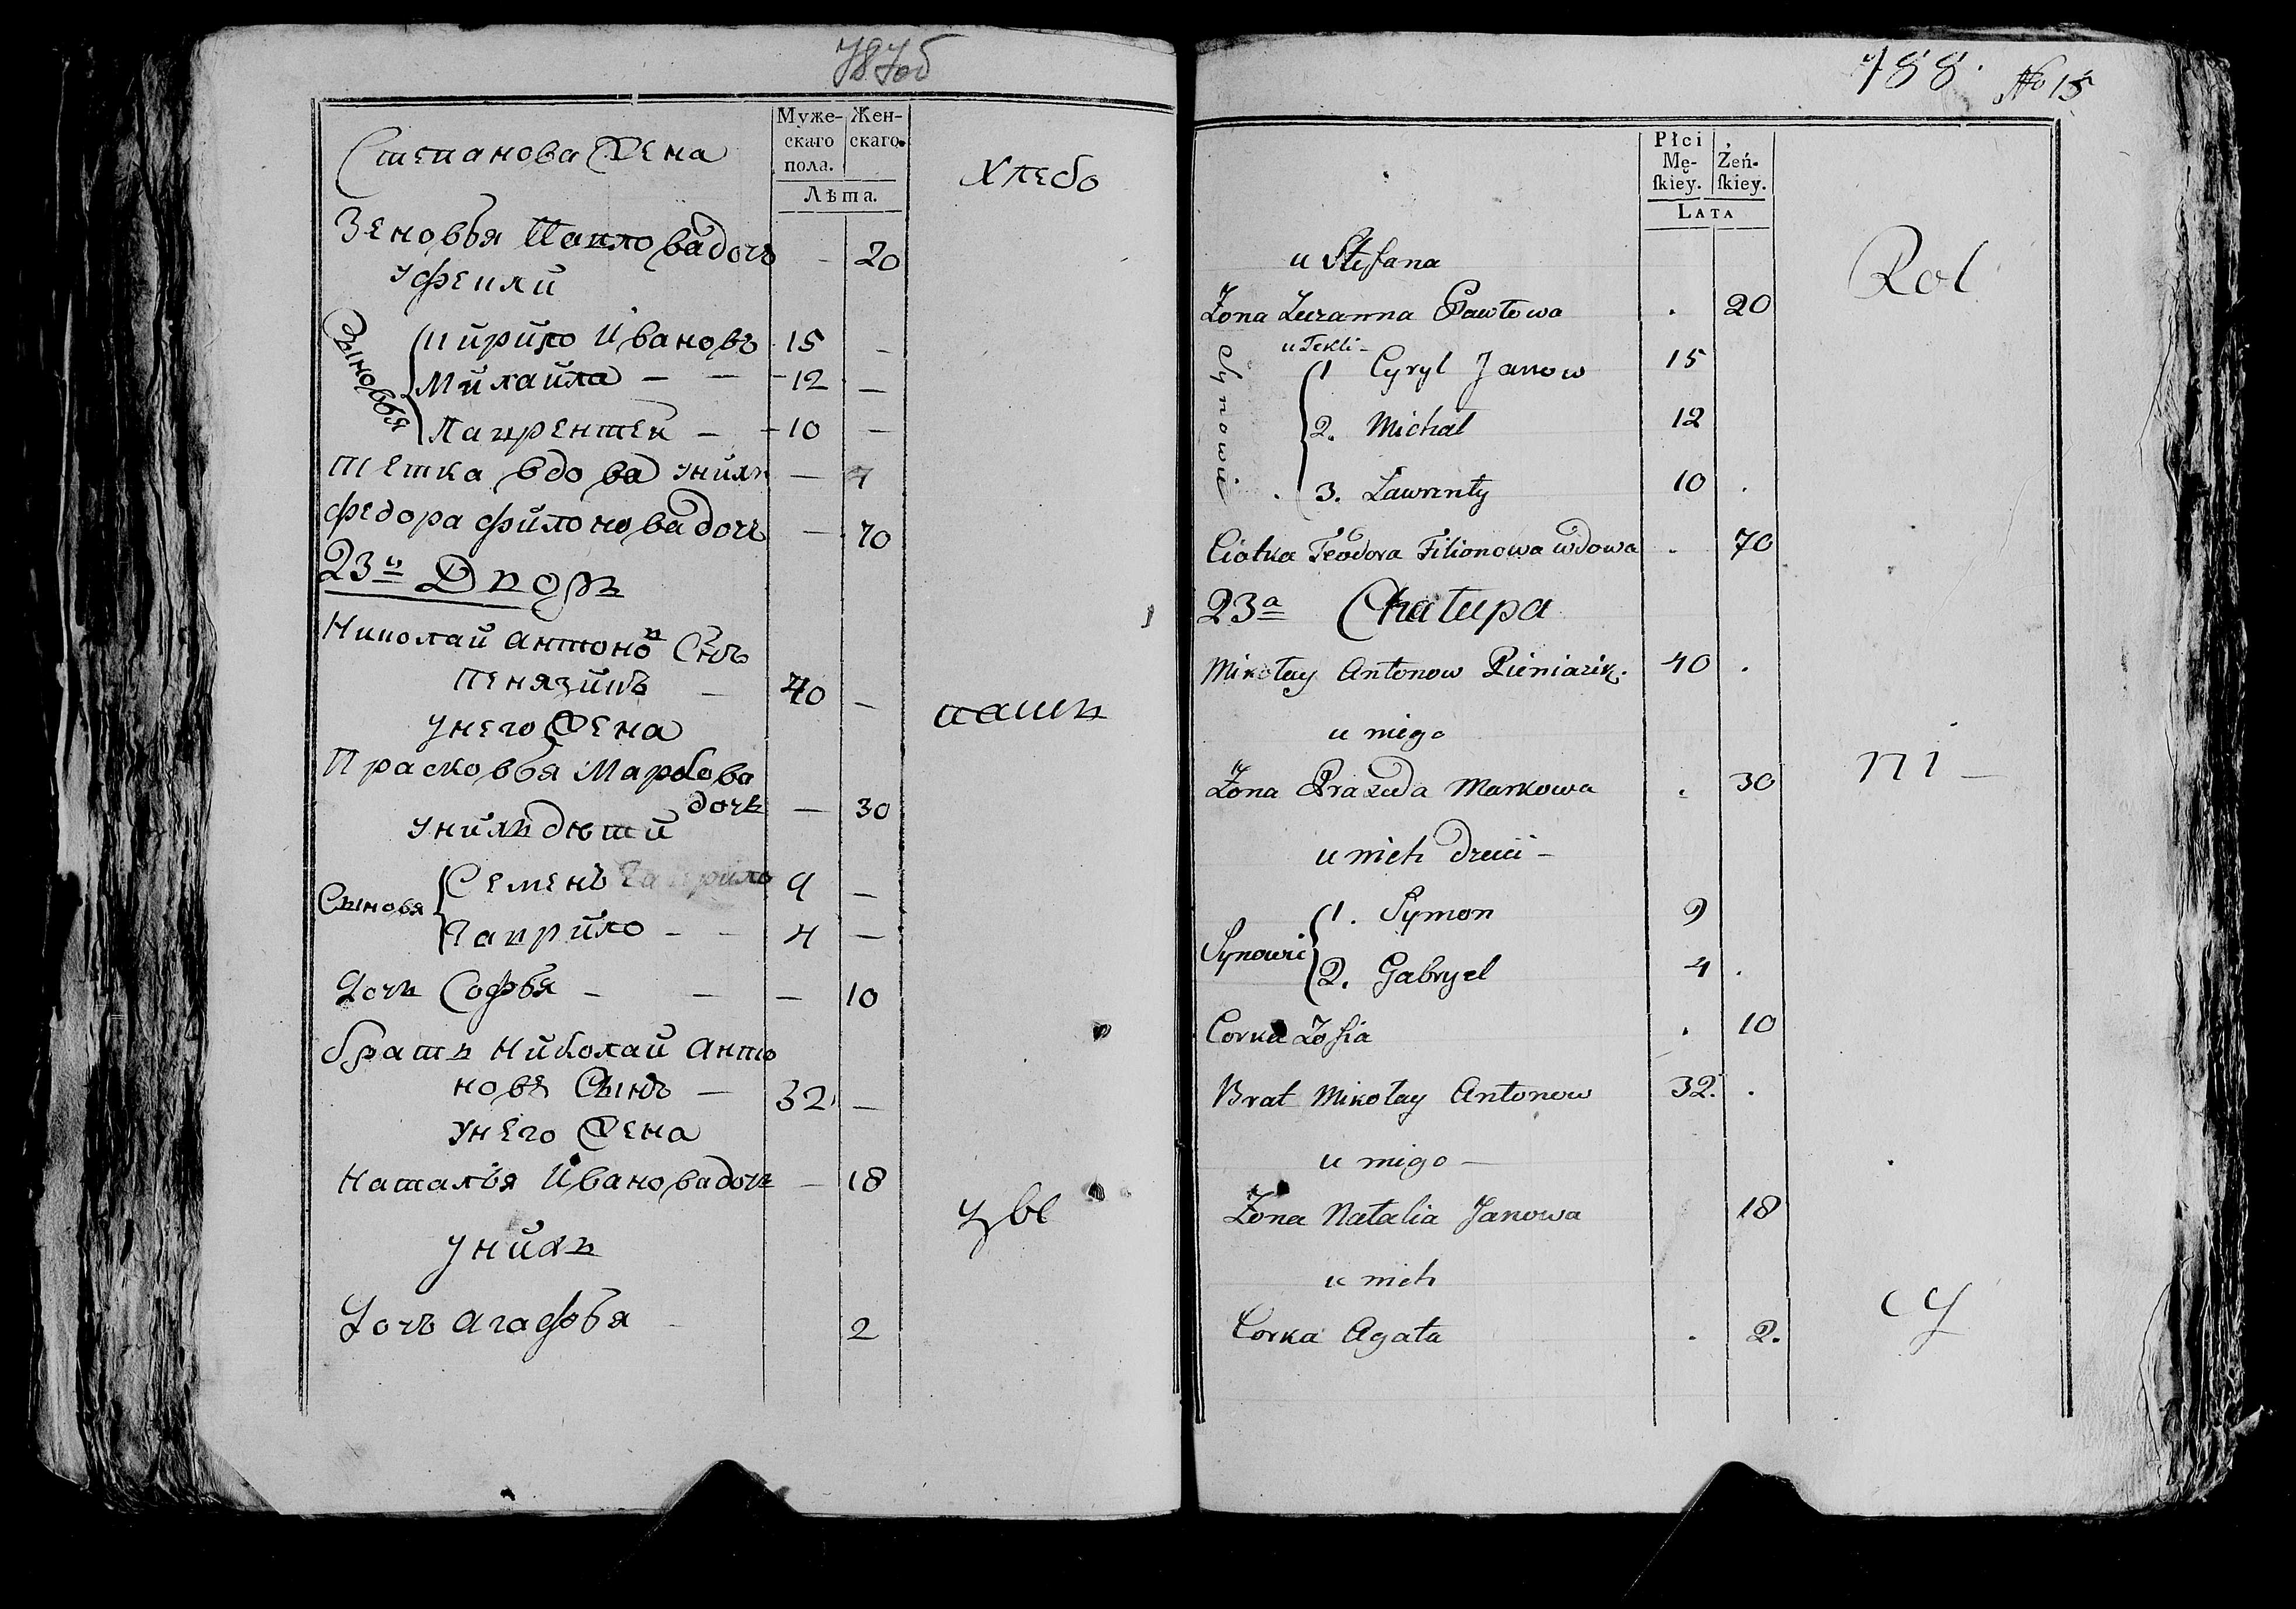 787об
Муже-
скаго
пола.
Жен-
скаго.
Лѣта.
Степанова Жена
Хлебо
Зеновья Павлова дочь
20
Уфекли
Сыновья
Кирило Ивановъ 15 —
Михайла — — 12 —
Лаврентей — 10 —
тетка вдова унихъ —
федора филонова дочь — 70
23й Дворъ
Николай Антоновъ Снъ
Пенязикъ — 40 —
паше
Унего Жена
Прасковья Маркова
дочь — 30
Унихъ дѣти
Сыновя
Семенъ Гаврило 9 —
Гаврило — — 4 —
Дочь Софья — — — 10
братъ Николай Анто
новъ Сынъ — 32 —
Унего Жена
Наталья Иванова дочь — 18
Унихъ
Дочь Агафья 2
788. No 15
Płci
Mę-
ſkiey.
Żeń-
ſkiey.
LATA
Rol
u Stefana
Żona Zuzanna Pawłowa . 20
u Tekli -
Synowie
1 Cyryl Janow 15
2. Michał 12
3. Lawrenty 10 .
Ciotka Teodora Filionowa wdowa . 70
23a Chałupa
Mikołay Antonow Pieniazik. 40 .
u niego
ni —
Żona Prazeda Markowa . 30
u nich dzieci -
Synowie
1. Symon 9
2. Gabryel 4 .
Corka Zofia . 10
Brat Mikołay Antonow 32. .
u niego —
Żona Natalia Janowa 18
u nich
cy
Corka Agata . 2.